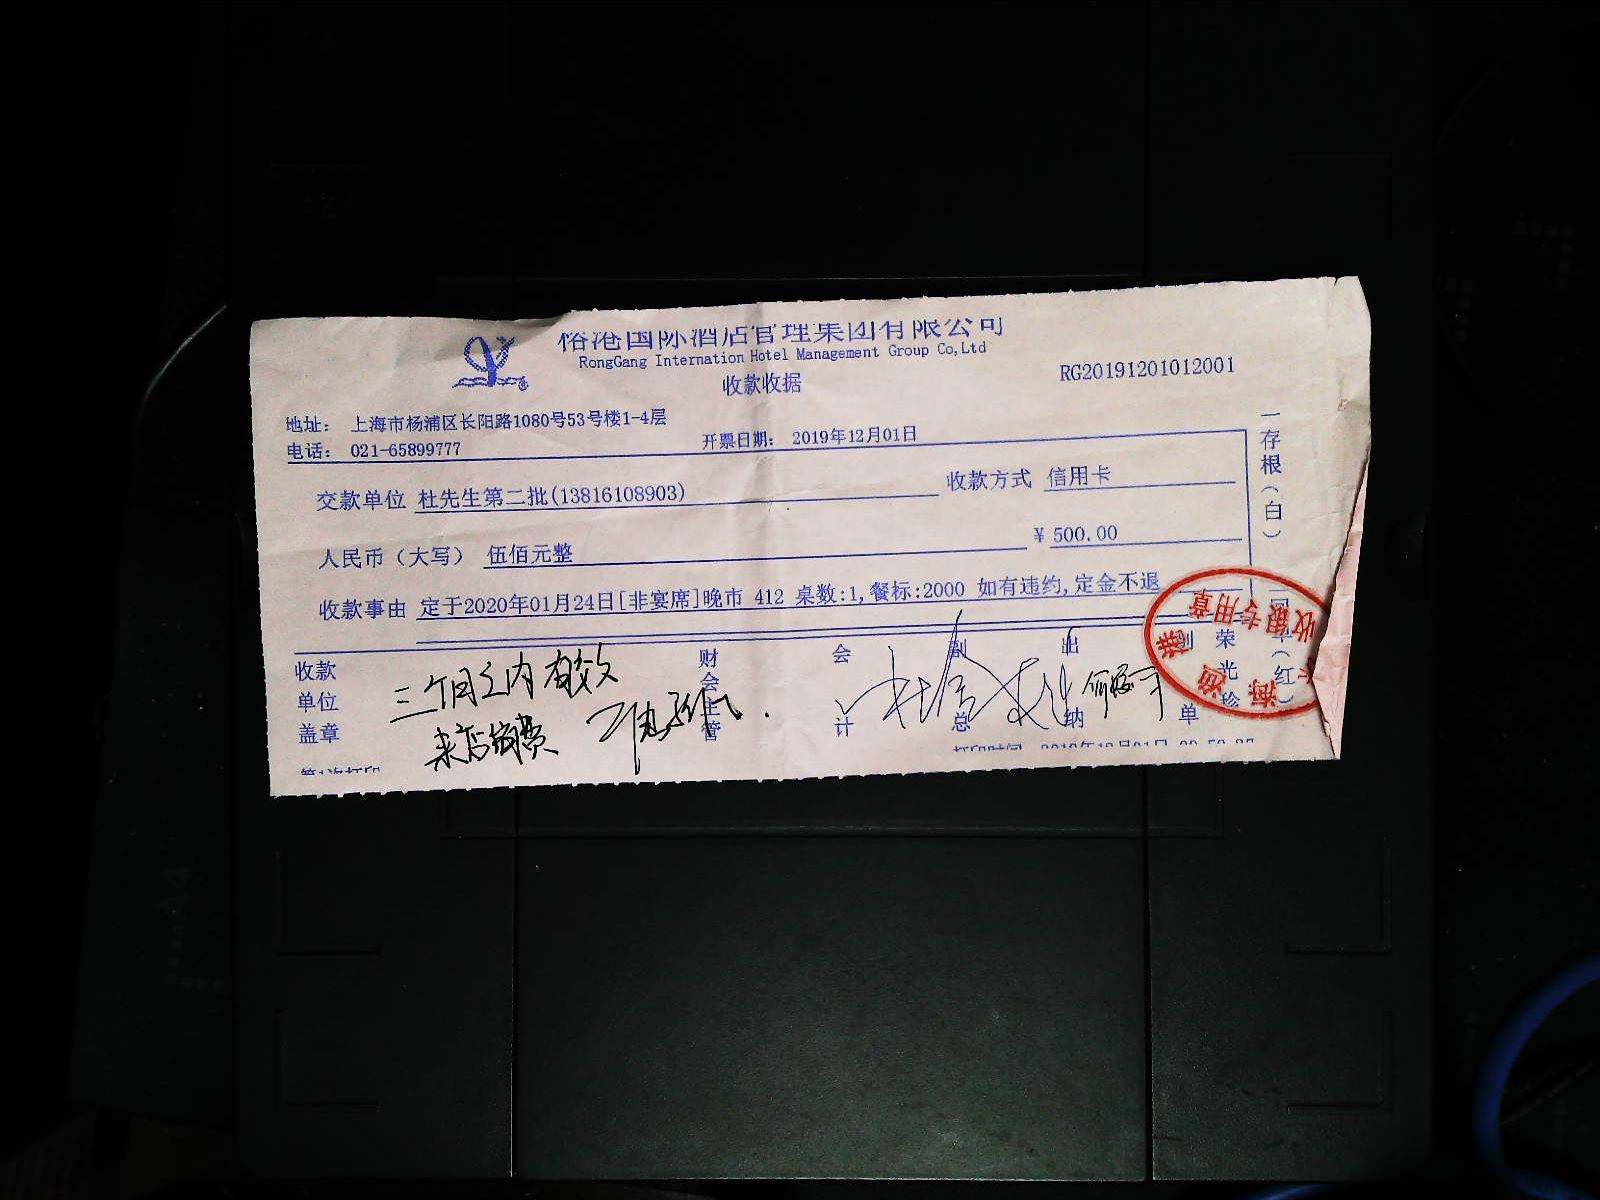 榕港国际酒店管理集团有限公司
RongGang Internation Hotel Management Group Co,Ltd
收款收据
RG20191201012001
地址： 上海市杨浦区长阳路1080号53号楼1-4层
电话： 021-65899777
开票日期： 2019年12月01日
交款单位 杜先生第二批(13816108903)
收款方式 信用卡
人民币（大写） 伍佰元整
¥ 500.00
收款事由 定于2020年01月24日[非宴席]晚市 412 桌数:1,餐标:2000 如有违约,定金不退
收款单位盖章
财会主管
会计
副总
出纳
制单
荣光珍
一存根（白）
（红）
三个月之内有效
来店消费
收银专用章
第1次打印
打印时间 2019年12月01日